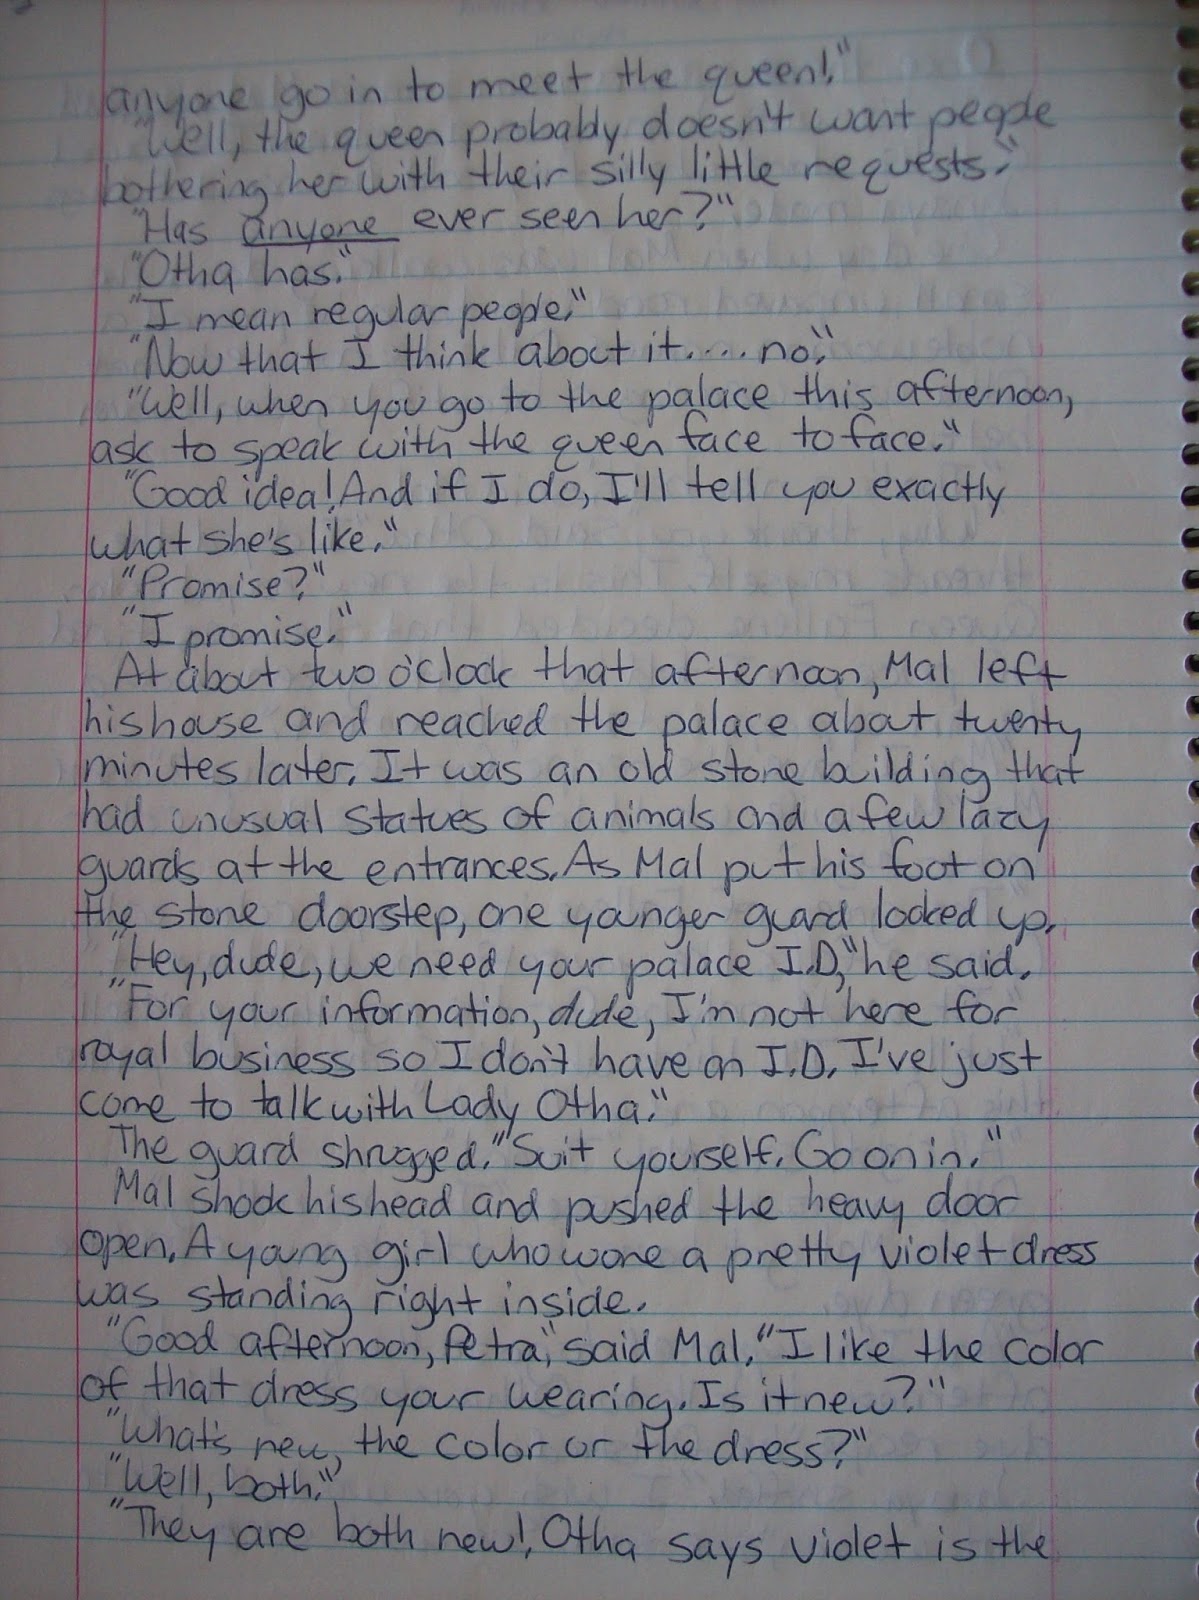 anyone go in to meet the queen!"
"Well, the queen probably doesn't want people
bothering her with their silly little requests."
"Has anyone ever seen her?"
"Otha has."
"I mean regular people."
"Now that I think about it.... no."
"Well, when you go to the palace this afternoon,
ask to speak with the queen face to face."
"Good idea! And if I do, I'll tell you exactly
what she's like."
"Promise?"
"I promise."
At about two o'clock that afternoon, Mal left
his house and reached the palace about twenty
minutes later. It was an old stone building that
had unusual statues of animals and a few lazy
guards at the entrances. As Mal put his foot on
the stone doorstep, one younger guard looked up.
"Hey, dude, we need your palace I.D," he said.
"For your information, dude, I'm not here for
royal business so I don't have an I.D. I've just
come to talk with Lady Otha."
The guard shrugged. "Suit yourself. Go on in."
Mal shook his head and pushed the heavy door
open. A young girl who wore a pretty violet dress
was standing right inside.
"Good afternoon, Petra," said Mal. "I like the color
of that dress your wearing. Is it new?"
"What's new, the color or the dress?"
"Well, both."
"They are both new! Otha says violet is the